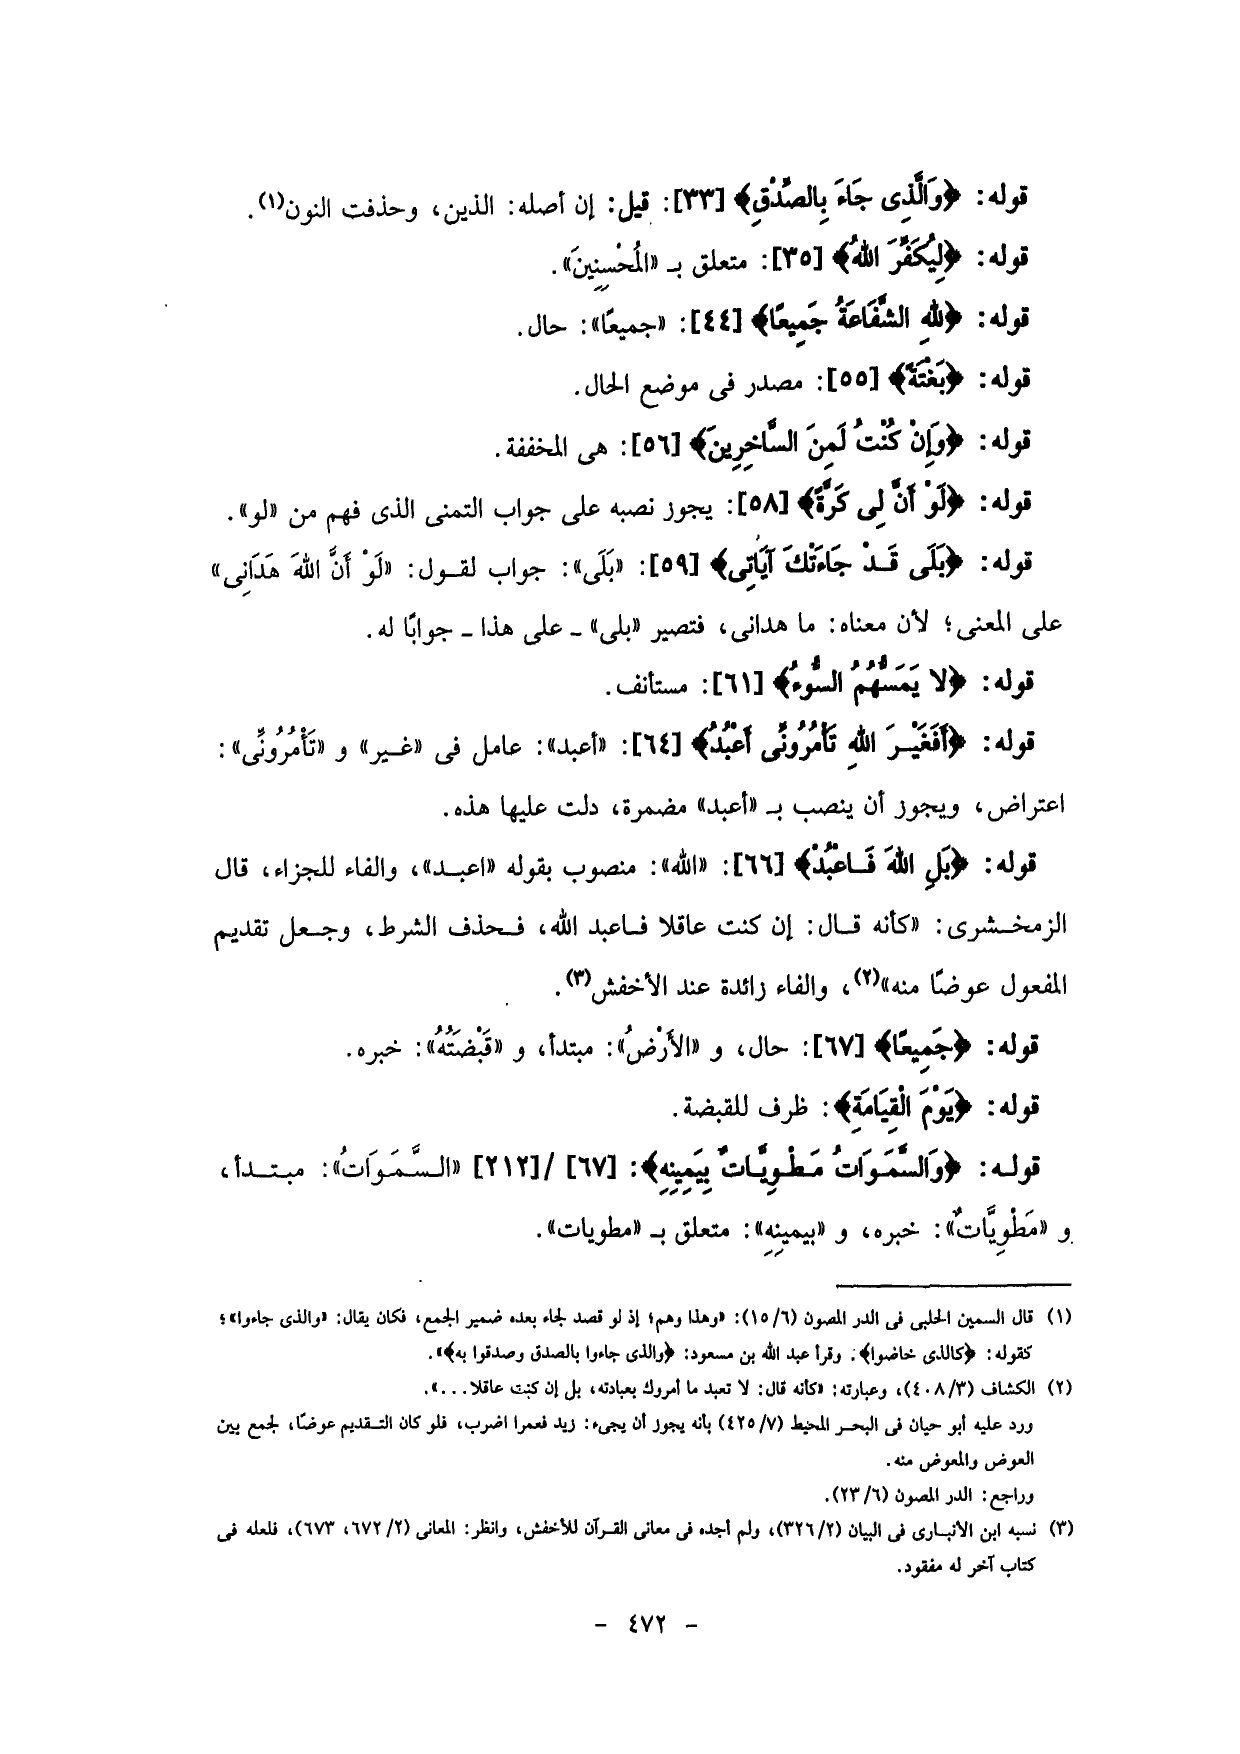 قوله: ﴿وَالَّذِى جَاءَ بِالصِّدْقِ﴾ [٣٣]: قيل: إن أصله: الذين، وحذفت النون(١).
قوله: ﴿لِيُكَفِّرَ اللهُ﴾ [٣٥]: متعلق بـ «المُحْسِنِينَ».
قوله: ﴿لِلهِ الشَّفَاعَةُ جَمِيعًا﴾ [٤٤]: «جميعًا»: حال.
قوله: ﴿بَغْتَةً﴾ [٥٥]: مصدر فى موضع الحال.
قوله: ﴿وَإِنْ كُنْتُ لَمِنَ السَّاخِرِينَ﴾ [٥٦]: هى المخففة.
قوله: ﴿لَوْ أَنَّ لِى كَرَّةً﴾ [٥٨]: يجوز نصبه على جواب التمنى الذى فهم من «لو».
قوله: ﴿بَلَى قَـدْ جَاءَتْكَ آيَاتِى﴾ [٥٩]: «بَلَى»: جواب لقـول: «لَوْ أَنَّ اللهَ هَدَانِى»
على المعنى؛ لأن معناه: ما هدانى، فتصير «بلى» ـ على هذا ـ جوابًا له.
قوله: ﴿لا يَمَسُّهُمُ السُّوءُ﴾ [٦١]: مستأنف.
قوله: ﴿أَفَغَيْـرَ اللهِ تَأْمُرُونِّى أَعْبُدُ﴾ [٦٤]: «أعبد»: عامل فى «غـير» و «تَأْمُرُونِّى»:
اعتراض، ويجوز أن ينصب بـ «أعبد» مضمرة، دلت عليها هذه.
قوله: ﴿بَلِ اللهَ فَـاعْبُدْ﴾ [٦٦]: «الله»: منصوب بقوله «اعبـد»، والفاء للجزاء، قال
الزمخـشرى: «كأنه قـال: إن كنت عاقلا فـاعبد الله، فـحذف الشرط، وجـعل تقديم
المفعول عوضًا منه»(٢)، والفاء زائدة عند الأخفش(٣).
قوله: ﴿جَمِيعًا﴾ [٦٧]: حال، و «الأَرْضُ»: مبتدأ، و «قَبْضَتُهُ»: خبره.
قوله: ﴿يَوْمَ الْقِيَامَةِ﴾: ظرف للقبضة.
قولـه: ﴿وَالسَّمَـوَاتُ مَـطْـوِيَّـاتٌ بِيَمِينِهِ﴾: [٦٧] /[٢١٢] «الـسَّـمَـوَاتُ»: مبـتـدأ،
و «مَطْوِيَّاتٌ»: خبره، و «بِيمينِهِ»: متعلق بـ «مطويات».
(١) قال السمين الحلبى فى الدر المصون (٦/ ١٥): «وهذا وهم؛ إذ لو قصد لجاء بعده ضمير الجمع، فكان يقال: «والذى جاءوا»؛
كقوله: ﴿كالذى خاضوا﴾. وقرأ عبد الله بن مسعود: ﴿والذى جاءوا بالصدق وصدقوا به﴾».
(٢) الكشاف (٣/ ٤٠٨)، وعبارته: «كأنه قال: لا تعبد ما أمروك بعبادته، بل إن كنت عاقلا...».
ورد عليه أبو حيان فى البحـر المحيط (٧/ ٤٢٥) بأنه يجوز أن يجىء: زيد فعمرا اضرب، فلو كان التـقديم عوضًا، لجمع بين
العوض والمعوض منه.
وراجع: الدر المصون (٦/ ٢٣).
(٣) نسبه ابن الأنبـارى فى البيان (٢/ ٣٢٦)، ولم أجده فى معانى القـرآن للأخفش، وانظر: المعانى (٢/ ٦٧٢، ٦٧٣)، فلعله فى
كتاب آخر له مفقود.
- ٤٧٢ -